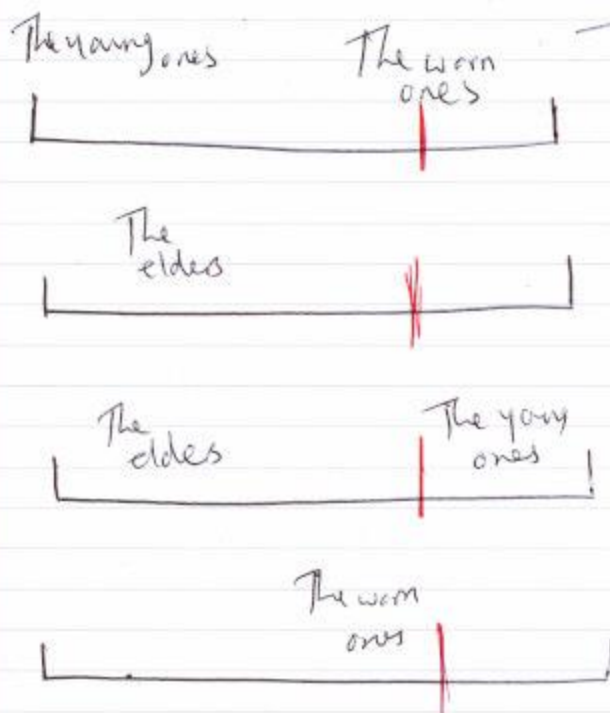 The young ones
The worn
ones
The
elders
The
elders
The young
ones
The worn
ones